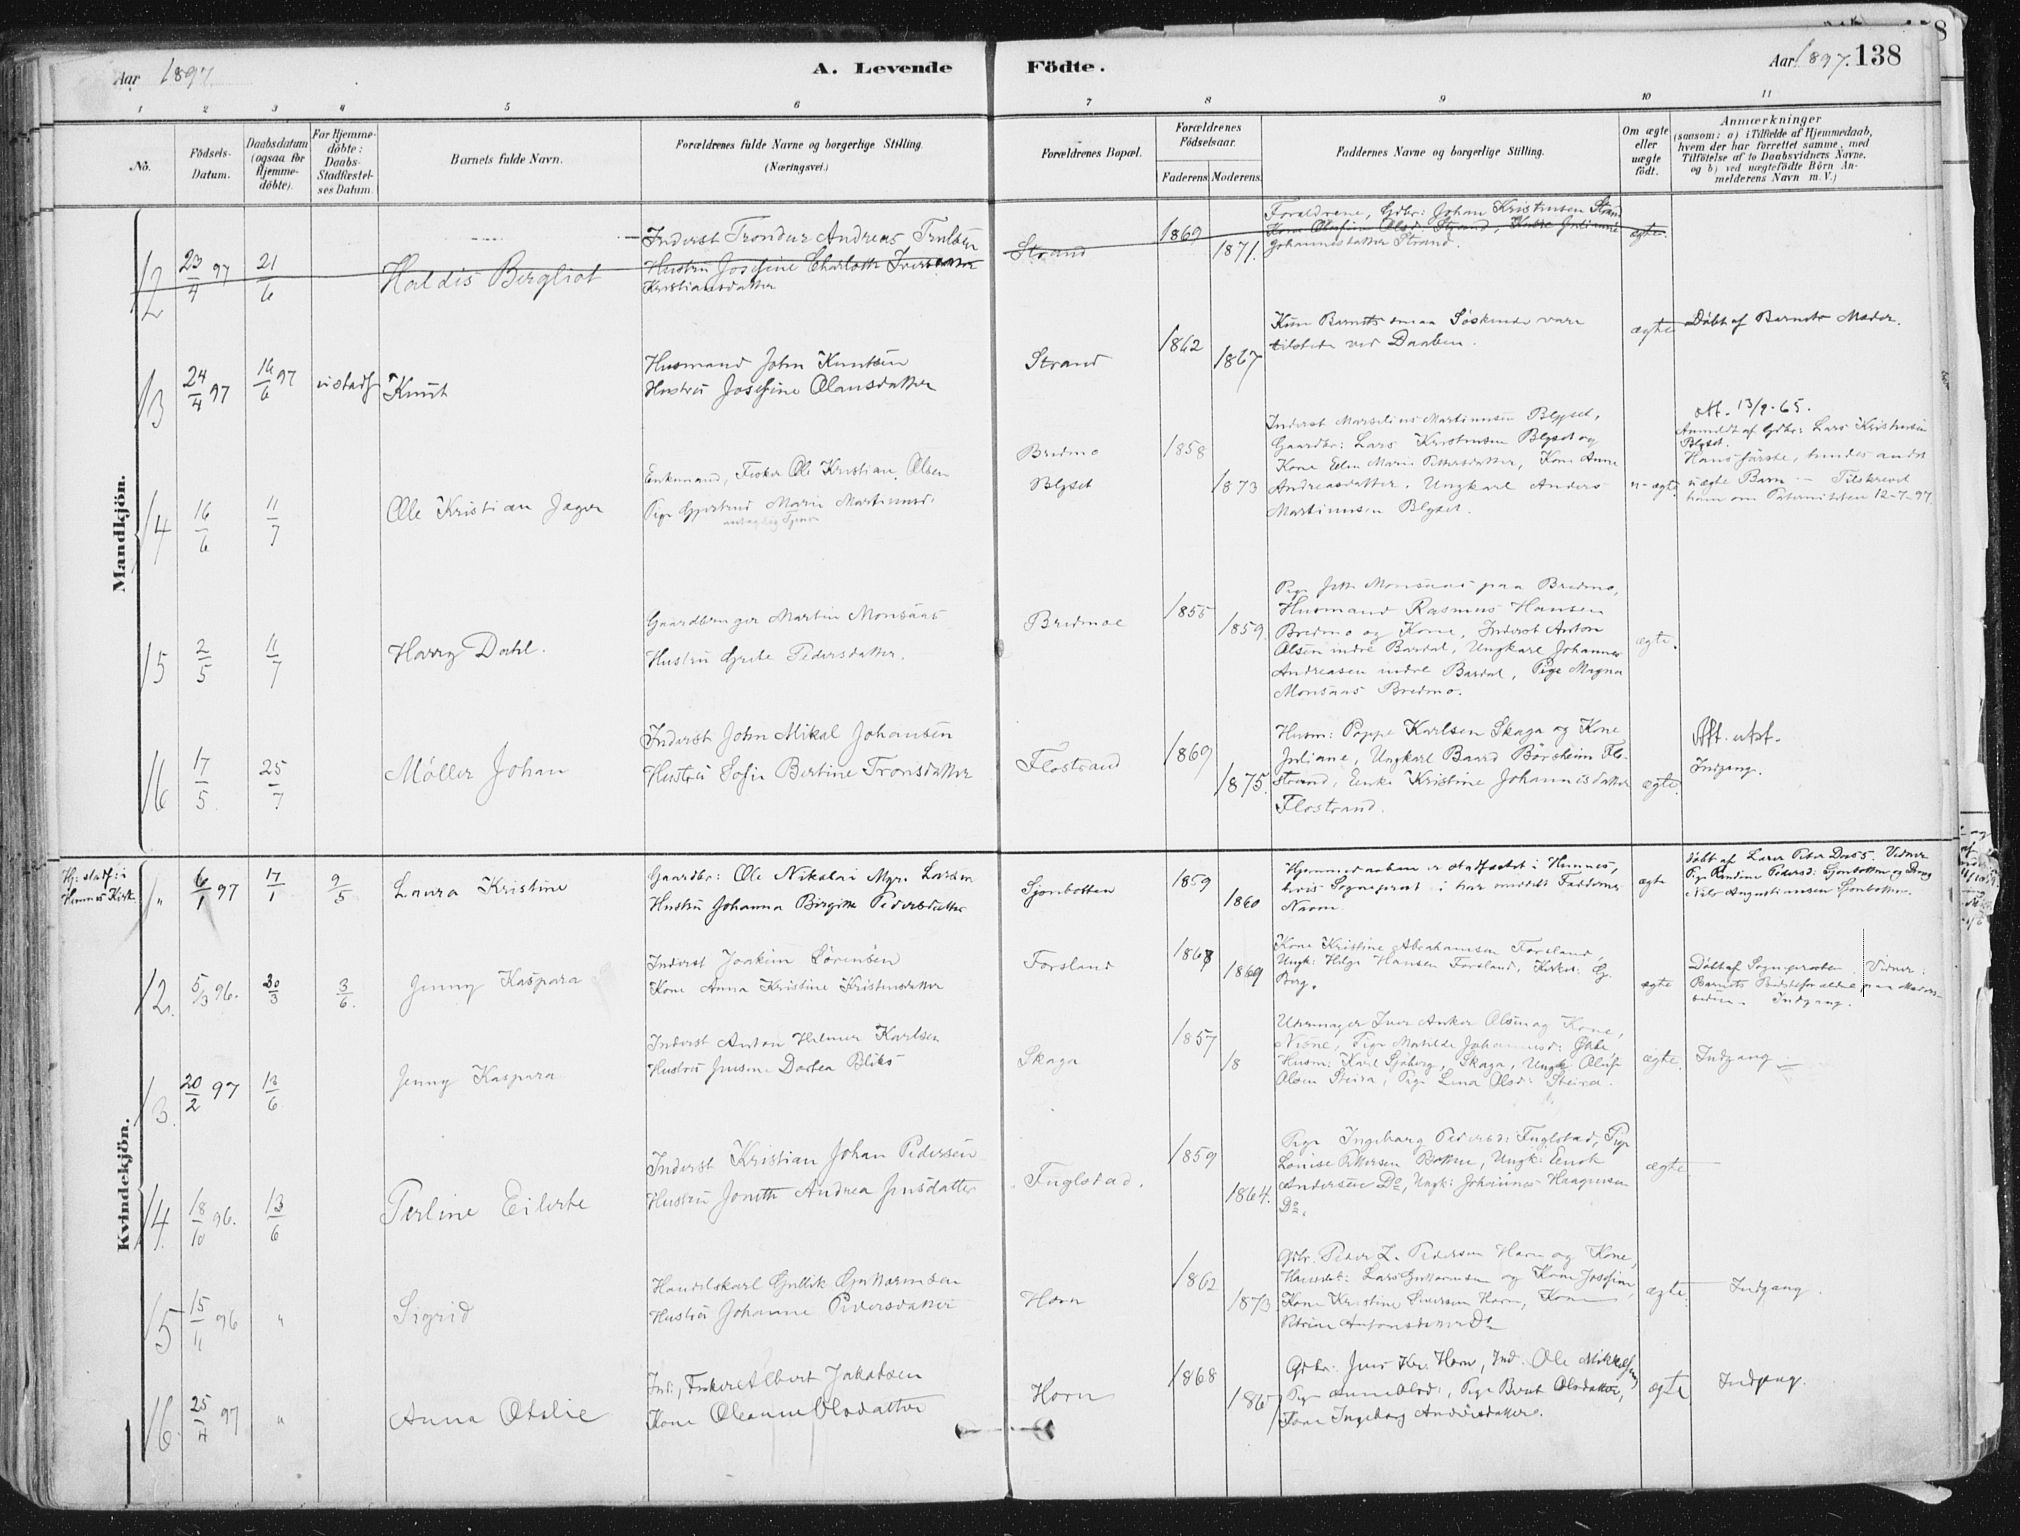 Aar 1897
A. Levende Födte.
Aar 1897. 138
1 2 3 4 5 6 7 8 9 10 11
No.
Födsels-Datum.
Daabsdatum (ogsaa for Hjemme-döbte).
For Hjemme-döbte: Daabs-Stadfæstel-ses Datum.
Barnets fulde Navn.
Forældrenes fulde Navne og borgerlige Stilling. (Næringsvei.)
Forældrenes Bopæl.
Forældrenes Födselsaar.
Faderens. Moderens.
Faddernes Navne og borgerlige Stilling.
Om ægte eller uægte födt.
Anmærkninger
(saasom: a) i Tilfælde af Hjemmedaab,
hvem der har forrettet samme, med
Tilföielse af to Daabsvidners Navne,
og b) ved uægtefödte Börn An-
melderens Navn m. V.)
Mandkjön.
12 23/4 97 21/6 Haldis Bergliot
Inderst Trondur Andreas Trulsen
Hustru Josefine Charlotte
Kristiansdatter
Strand 1869 1871.
Foreldrene, Gdbr: Johan Kristensen Strand
Kone Olufine Olsd. Strand,
Johannesdatter Strand.
ægte
13 24/4 97 16/6 97 Knut
Husmand John Knutsen
Hustru Josefine Olausdatter
Strand 1862 1867
Kun Barnets smaa Søskende vare
tilstede ved Daaben.
ægte Døbt af Barnets Moder.
14 16/6 11/7 Ole Kristian Jager
Enkemand, Fisker Ole Kristian Olsen
Pige Gjertrud Marie Martinusd.
Bredmo
Blyset
1858 1873
Inderst Marselius Martinusen Blyset,
Gaardbr: Lars Kristensen Blyset og
Kone Elen Marie Pettersdatter, Kone Anne
Andreasdatter, Ungkarl Anders
Martinusen Blyset.
u-ægte
att. 13/9-65.
Anmeldt af Gdbr: Lars Kristensen
Blyset.
Hans første, hendes andet
uægte Barn - Tilskrevet
ham om Paterniteten 12-7-97
15 2/5 11/7 Harry Dahl.
Gaardbruger Martin Monsaas
Hustru Grete Pedersdatter.
Bredmoe 1855 1859.
Pige Jette Monsaas paa Bredmo,
Husmand Rasmus Hansen
Bredmo og Kone, Inderst Anton
Olsen indre Bardal, Ungkarl Johannes
Andreasen indre Bardal, Pige Magna
Monsaas Bredmo.
ægte.
16 17/5 25/7 Møller Johan
Inderst John Mikal Johansen
Hustru Sofie Bertine Tronsdatter
Flostrand 1869 1875.
Husm: Poppe Karlsen Skaga og Kone
Juliane, Ungkarl Baard Børsheim Flo-
strand, Enke Kristine Johannesdatter
Flostrand.
ægte.
Aft. utst.
Indgang.
Kvindekjön.
Hj: stadf: i
Hemnes Kirk.
1. 6/1 97 17/1 9/5 Laura Kristine
Gaardbr: Ole Nikolai Mgr. Larsen
Hustru Johanna Birgitte Pedersdatter
Sjonbotten 1859 1860
Hjemmedaaben er stadfæstet i Hemnes,
hvis Sogneprest i har meddelt Faddernes
Navne.
ægte
Døbt af Lærer Peter Dass. Vidner
Pige Pedersd: Sjonbotten og Dreng
Nils Augustinusen Sjonbotten.
12. 5/3 96. 20/3 3/6. Jenny Kaspara
Inderst Joakim Sørensen
Kone Anna Kristine Kristensdatter
Forsland 1867 1869
Kone Kristine Abrahamsen Forsland,
Ungk: Helge Hansen Forsland, Kirkes: G.
Berg.
ægte
Døbt af Sognepresten. Vidner:
Barnets Bedsteforældre paa Moders-
siden. Indgang.
13. 20/2 97 13/6 Jenny Kaspara
Inderst Anton Helmer Karlsen
Hustru Jensine Dortea Bliks
Skaga 1857 18
Uhrmager Iver Anker Olsen og Kone,
Pige Matilde Johannesd:
Husm: Karl Sjøberg, Skaga, Ungk Oluf
Olsen Steira, Pige Lina Olsd: Steira.
ægte. Indgang
14. 18/10 96. 13/6 Perline Eilerte
Inderst Kristian Johan Pedersen
Hustru Jonette Andrea Jensdatter
Fuglstad. 1859 1864.
Pige Ingeborg Pedersd: Fuglstad, Pige
Lonise Pettersen Botten, Ungk: Enok
Andersen Do, Ungk: Johannes Haagensen
Do.
ægte
15 15/11 96 " Sigrid
Handelskarl Gullik Guttormsen
Hustru Johanne Pedersdatter
Horn 1862 1873
Gdbr. Peder Z. Pedersen Horn og Kone,
Handelsk: Lars Guttormsen og Kone Josefine,
Kone Kristine Sivertsen Horn, Kone
Petrine Antonsdatter Do
ægte. Indgang.
16. 25/4 97 " Anna Otelie
Ind:, Fisker Albert Jakobsen
Kone Oleanne Olsdatter
Horn 1868 1867
Gdbr. Jens Horn, Ind. Ole Mikkelsen,
Pige Anne Olsd:, Pige Berit Olsdatter,
Kone Ingeborg Andersdatter.
ægte Indgang.